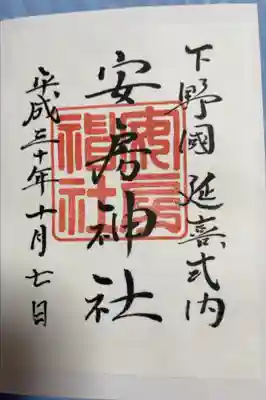 下野國延喜式内
安房神社
平成三十年十月七日
安房神社